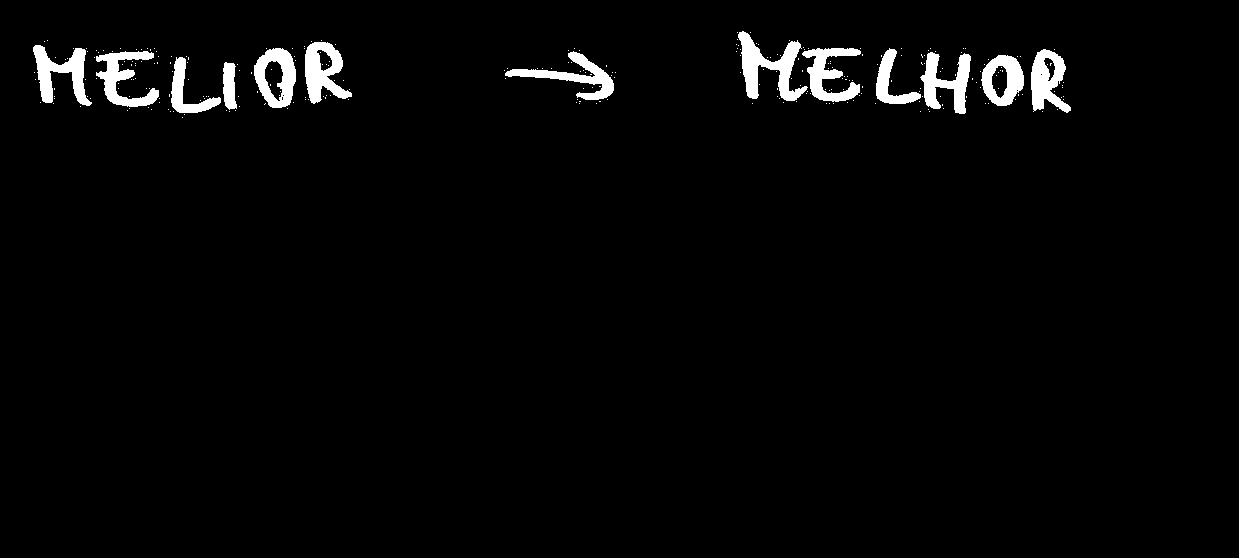 MELIOR → MELHOR